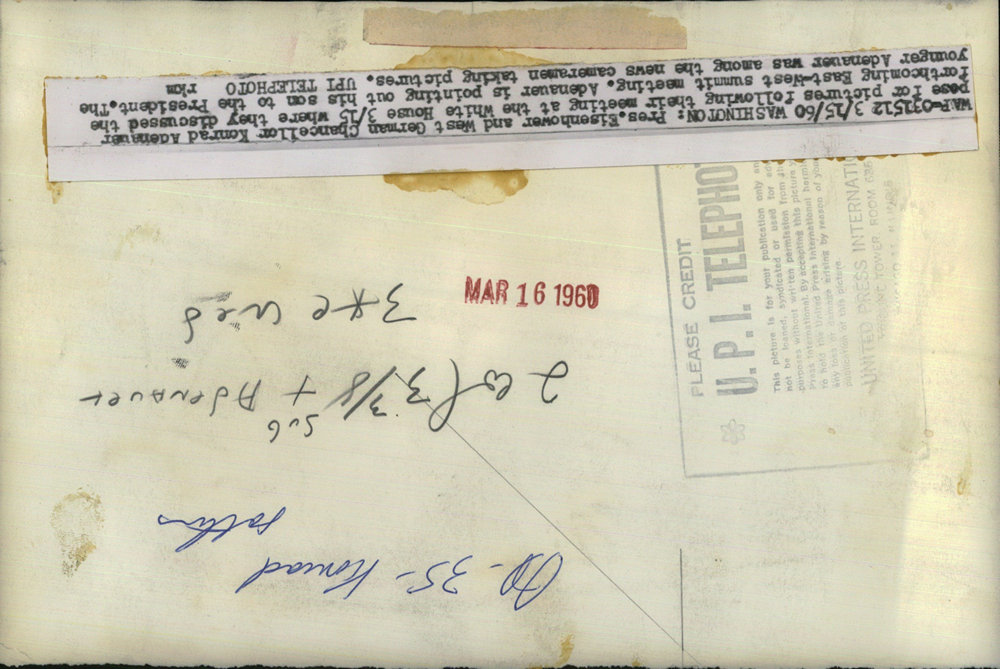 WAP-031512 3/15/60 WASHINGTON: Pres. Eisenhower and West German Chancellor Konrad Adenauer
pose for pictures following their meeting at the White House 3/15 where they discussed the
forthcoming East-West summit meeting. Adenauer is pointing out his son to the President. The
younger Adenauer was among the news cameramen taking pictures. UPI TELEPHOTO
rkm
MAR 16 1960
3 * e Wed
2 col 3 3/8 + Adenauer
Sub
35 - Konrad
PLEASE CREDIT
U. P. I. TELEPHO
This picture is for your publication only an
not be loaned, syndicated or used for ad
purposes without written permission from
Press International. By accepting this picture y
to hold the United Press International harml
any loss or damage arising by reason of you
publication of this picture.
UNITED PRESS INTERNATI
TOWER, ROOM